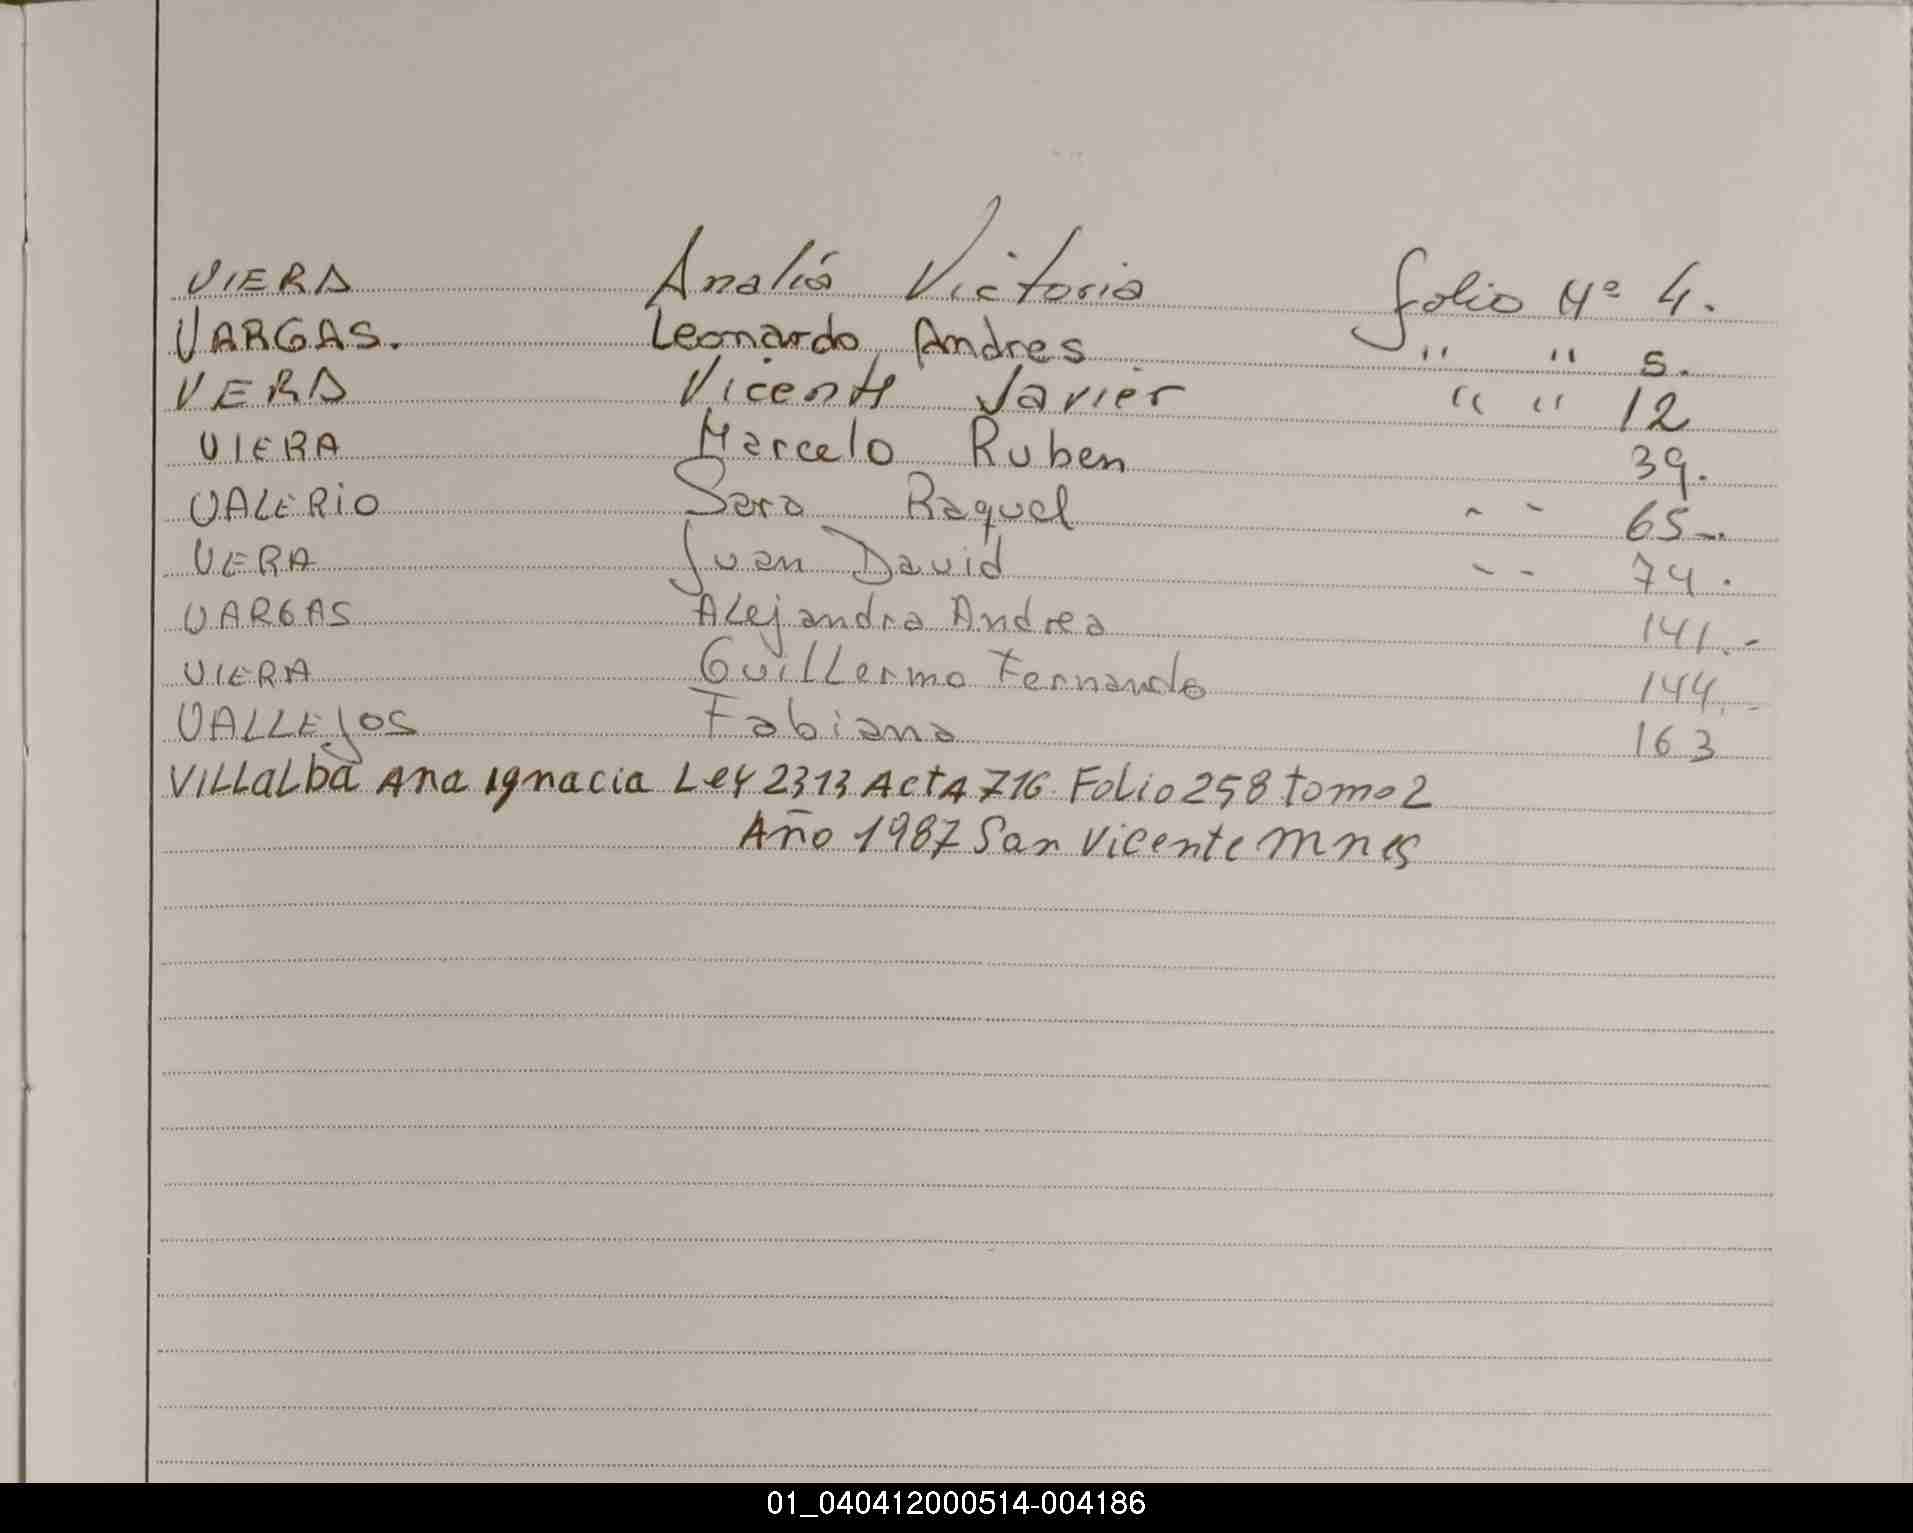 VIERA Analía Victoria folio Nº 4.
VARGAS. Leonardo Andres " " 5.
VERA Vicente Javier " " 12
VIERA Marcelo Ruben 39.
VALERIO Sara Raquel - - 65-.
VERA Juan David - - 74.
VARGAS Alejandra Andrea 141.-
VIERA Guillermo Fernando 144.-
VALLEJOS Fabiana 163
VILLaLba Ana Ignacia Ley 2313 ActA 716 Folio 258 tomo 2
Año 1987 San Vicente Mnes
01_040412000514-004186